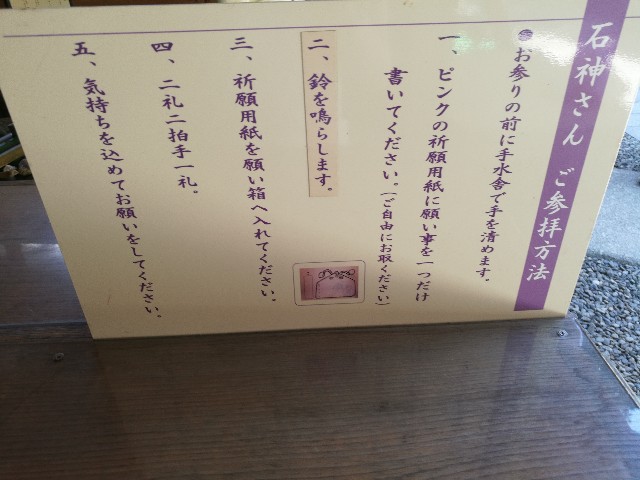 石神さん ご参拝方法
お参りの前に手水舎で手を清めます。
一、ピンクの祈願用紙に願い事を一つだけ
書いてください。(ご自由にお取ください)
二、鈴を鳴らします。
三、祈願用紙を願い箱へ入れてください。
四、二礼二拍手一礼。
五、気持ちを込めてお願いをしてください。